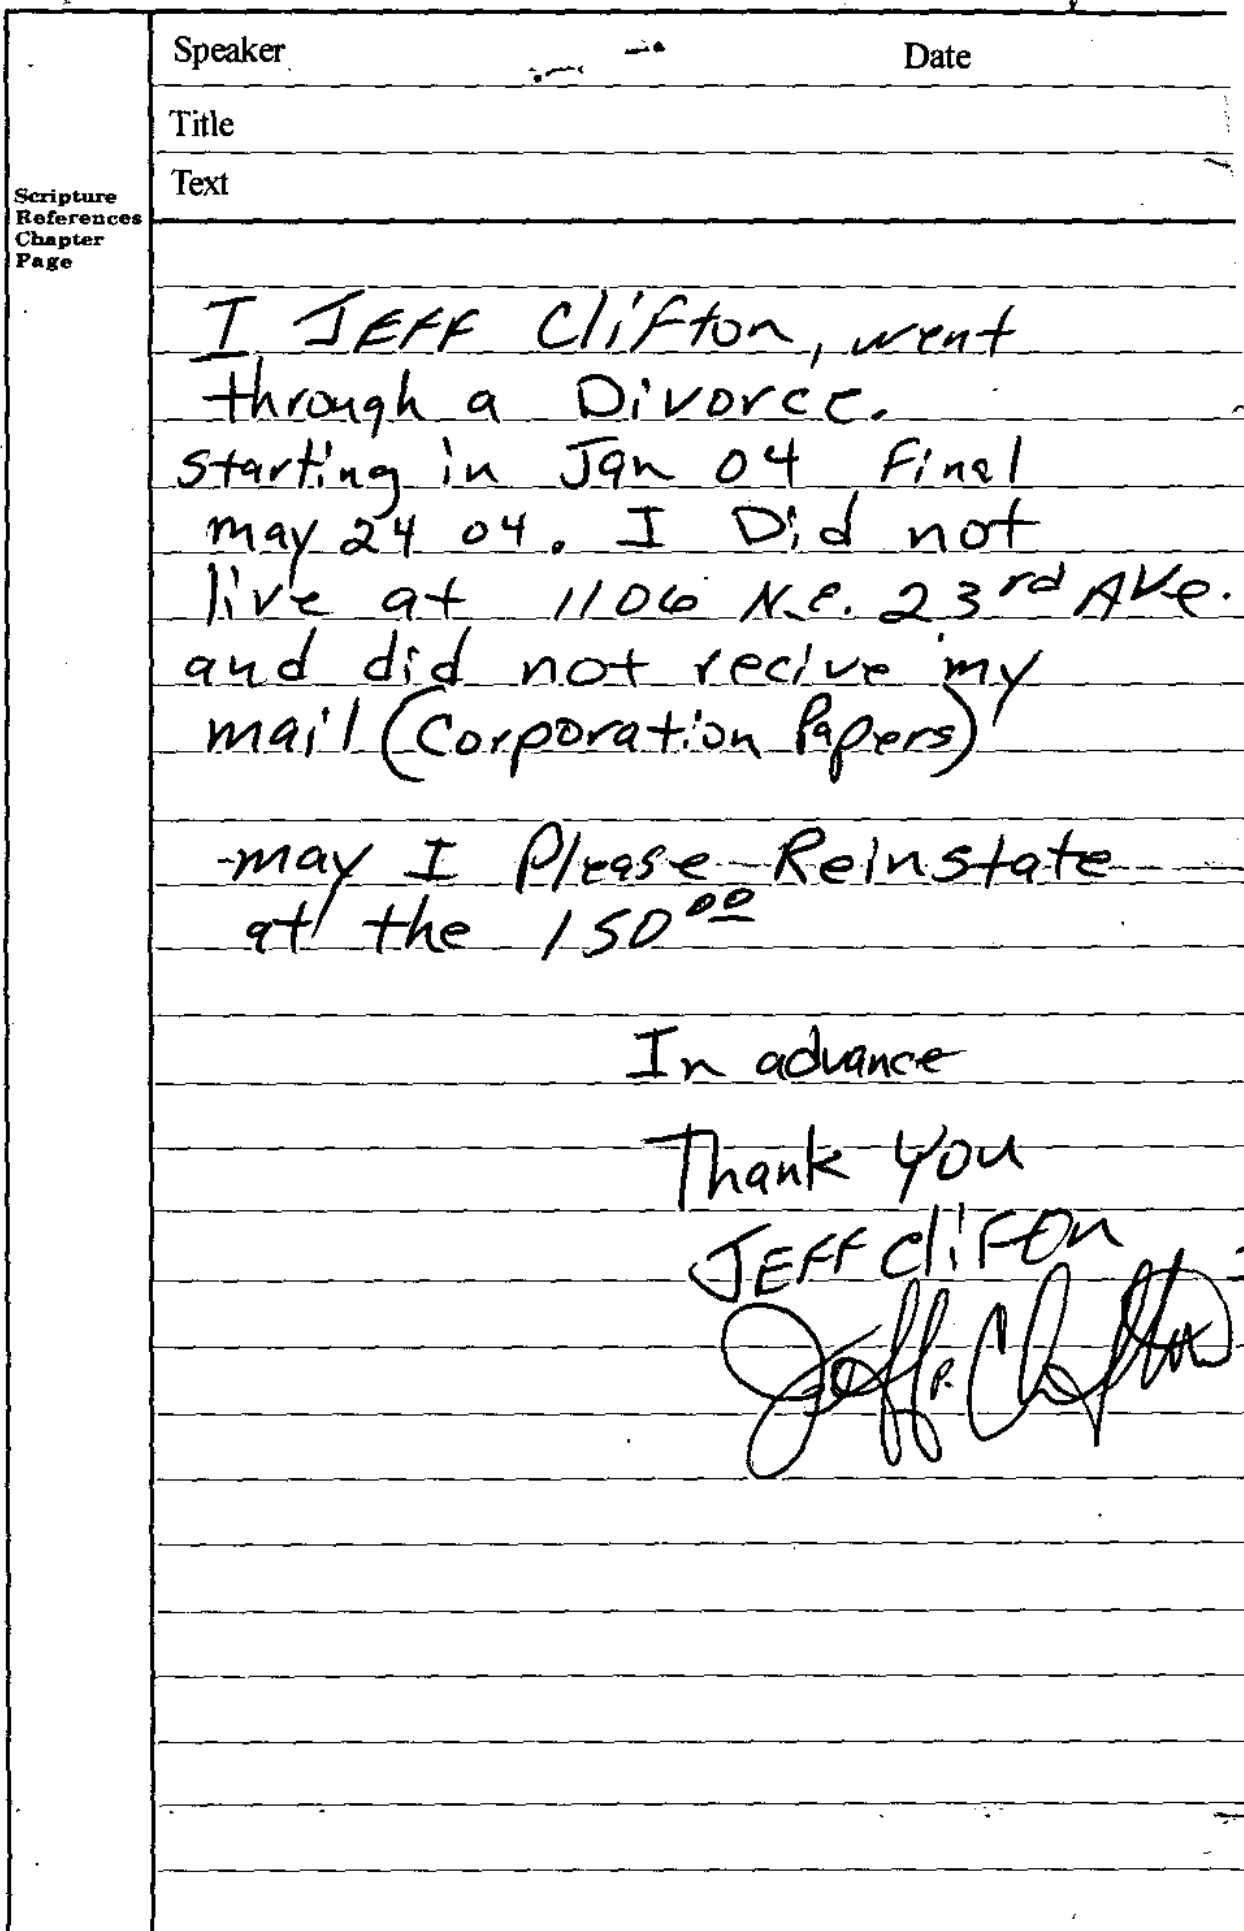 Speaker Date
Title
Text
Scripture
References
Chapter
Page
I JEFF Clifton, went
through a Divorce.
starting in Jan 04 final
may 24 04. I Did not
live at 1106 N.e. 23rd AVe.
and did not recive my
mail (Corporation Papers)
may I Please Reinstate
at the 150 00
In advance
Thank You
JEFF Clifton
Jeff P. Clifton